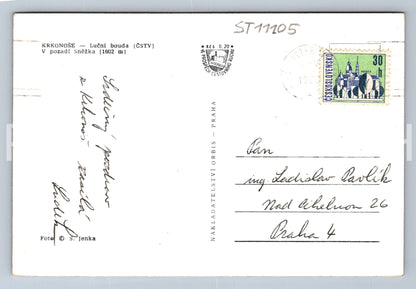 ST11105
KRKONOŠE — Luční bouda (ČSTV)
V pozadí Sněžka (1602 m)
ČESKOSLOVENSKO
30 h
Srdečný pozdrav
z Krkonoš zasílá
Luděk
Pan
ing Ladislav Pavlík
Nad
Praha 4
NAKLADATELSTVÍ ORBIS - PRAHA
Foto © S. Jenka